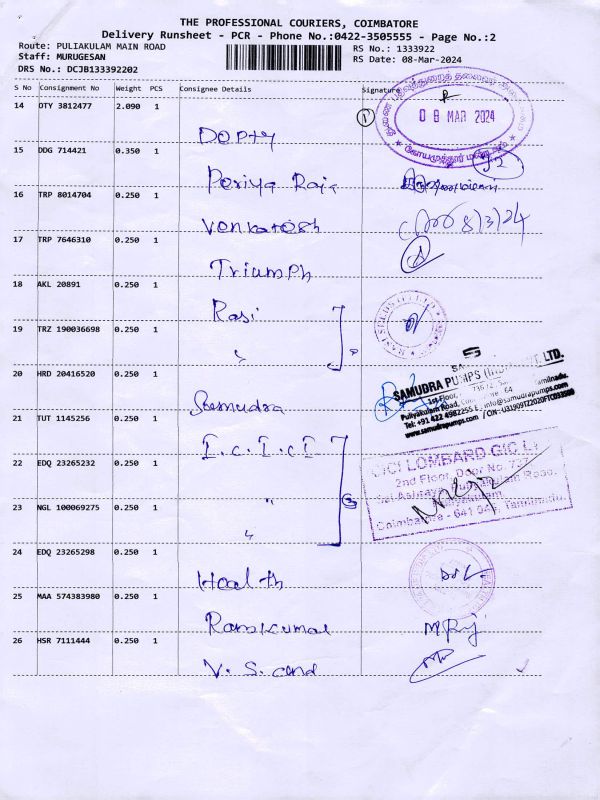 THE PROFESSIONAL COURIERS, COIMBATORE
Delivery Runsheet - PCR - Phone No.:0422-3505555 - Page No.:2
Route: PULIAKULAM MAIN ROAD RS No.: 1333922
Staff: MURUGESAN RS Date: 08-Mar-2024
DRS No.: DCJB133392202
S No Consignment No Weight PCS Consignee Details Signature
14 OTY 3812477 2.090 1
08 MAR 2024
DOPTy
15 DDG 714421 0.350 1
Periya Raja
16 TRP 8014704 0.250 1
Venkatesh 8/3/24
17 TRP 7646310 0.250 1
Triumph
18 AKL 20891 0.250 1
Rasi
19 TRZ 190036698 0.250 1
"
20 HRD 20416520 0.250 1
SAMUDRA PUMPS LTD.
1st Floor,
Puliyakulam Road, 64 Tamilnadu.
Tel: +91 422 4982255 E. info@samudrapumps.com
www.samudrapumps.com
Samudra
21 TUT 1145256 0.250 1
I.C.I.C.I
22 EDQ 23265232 0.250 1
ICICI LOMBARD GIC L
2nd Floor, Door No. 727,
Puliyakulam Road,
Puliyakulam,
Coimbatore - 641 045, Tamilnadu.
"
23 NGL 100069275 0.250 1
"
24 EDQ 23265298 0.250 1
Health
25 MAA 574383980 0.250 1
Ramkumar
26 HSR 7111444 0.250 1
V. S. and